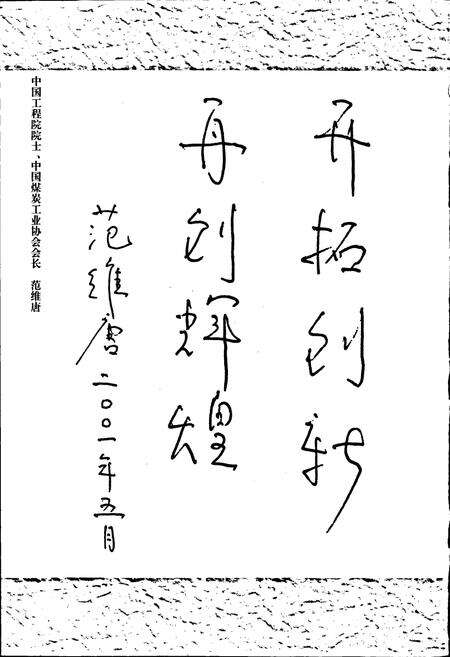 开拓创新
再创辉煌
范维唐 二〇〇一年五月
中国工程院院士、中国煤炭工业协会会长 范维唐